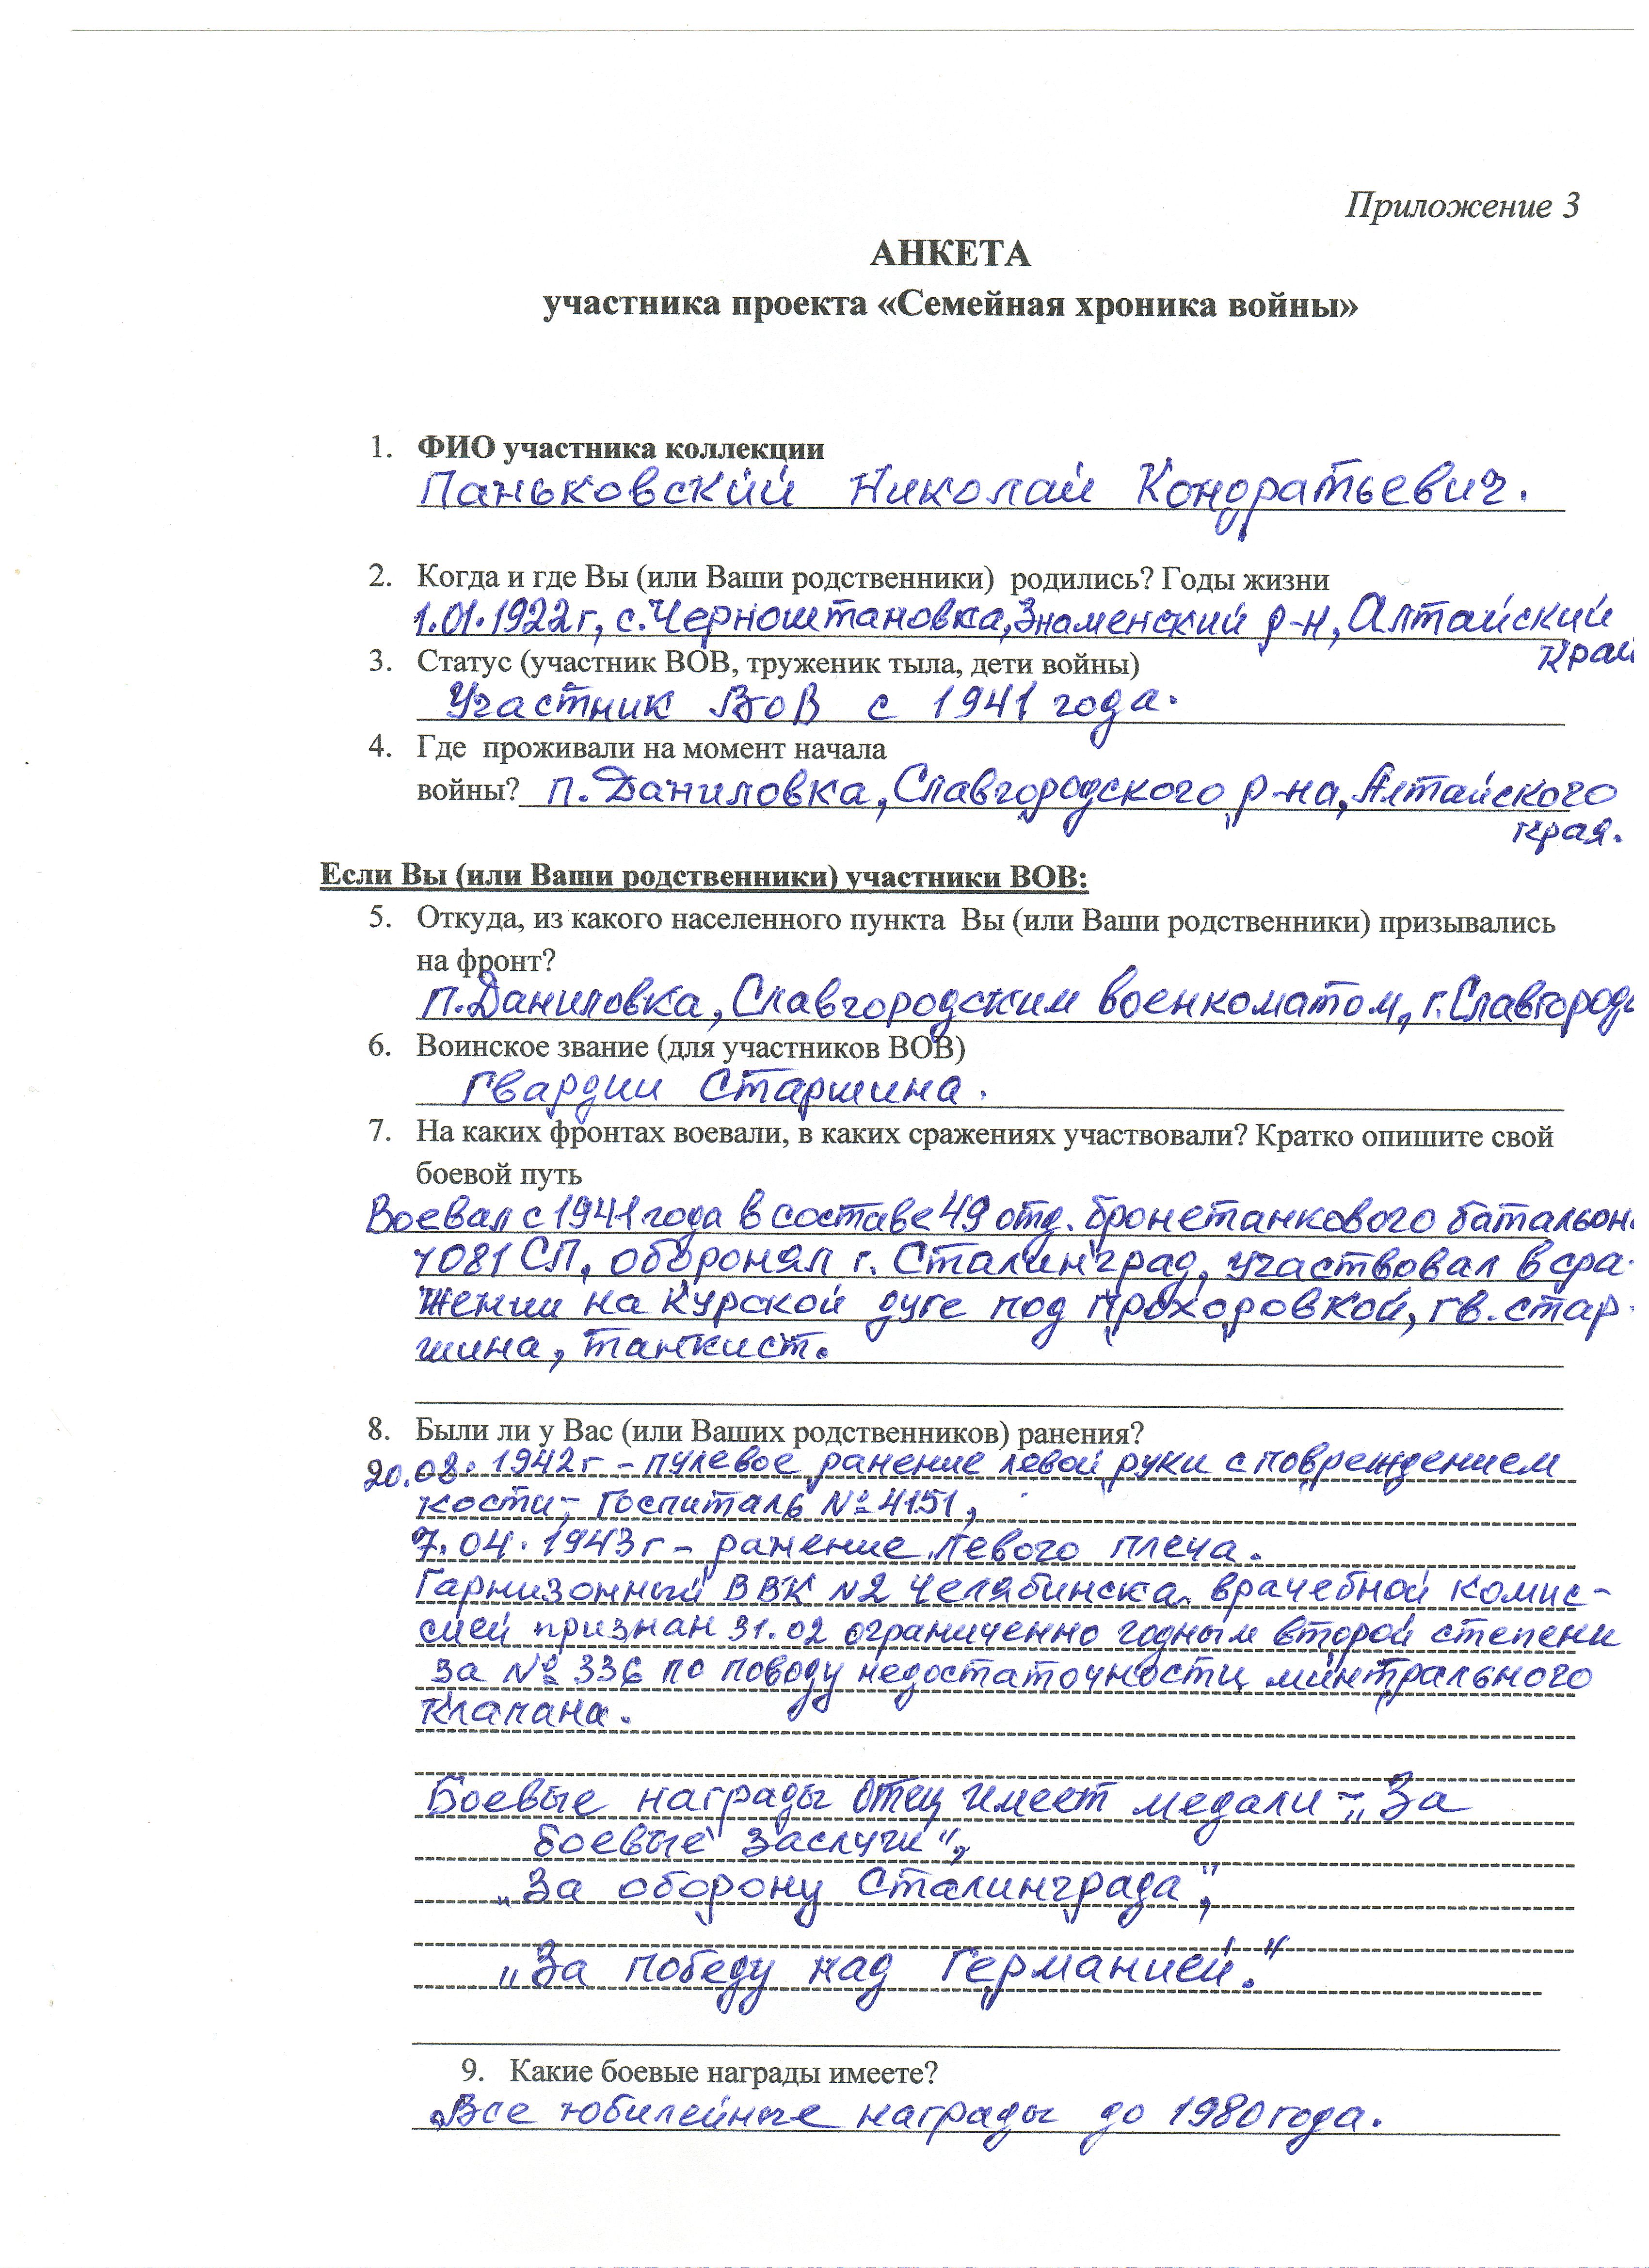 Приложение 3
АНКЕТА
участника проекта «Семейная хроника войны»
1. ФИО участника коллекции
Паньковский Николай Кондратьевич.
2. Когда и где Вы (или Ваши родственники) родились? Годы жизни
1.01.1922г, с.Черноштановка, Знаменский р-н, Алтайский
край
3. Статус (участник ВОВ, труженик тыла, дети войны)
Участник ВоВ с 1941 года.
4. Где проживали на момент начала
войны? п.Даниловка, Славгородского р-на, Алтайского
края.
Если Вы (или Ваши родственники) участники ВОВ:
5. Откуда, из какого населенного пункта Вы (или Ваши родственники) призывались
на фронт?
п.Даниловка, Славгородским военкоматом, г.Славгород
6. Воинское звание (для участников ВОВ)
Гвардии Старшина.
7. На каких фронтах воевали, в каких сражениях участвовали? Кратко опишите свой
боевой путь
Воевал с 1941 года в составе 49 отд. бронетанкового батальон
1081 СП, оборонял г. Сталинград, участвовал в сра-
жении на Курской дуге под Прохоровкой, гв. стар-
шина, танкист.
8. Были ли у Вас (или Ваших родственников) ранения?
20.08.1942г - пулевое ранение левой руки с повреждением
кости - Госпиталь №4151,
7.04.1943г - ранение левого плеча.
Гарнизонный ВВК N2 Челябинска. врачебной комис-
сией признан 31.02 ограниченно годным второй степени
за № 336 по поводу недостаточности минтрального
клапана.
Боевые награды отец имеет медали - „За
боевые заслуги",
„За оборону Сталинграда",
„За победу над Германией."
9. Какие боевые награды имеете?
Все юбилейные награды до 1980 года.